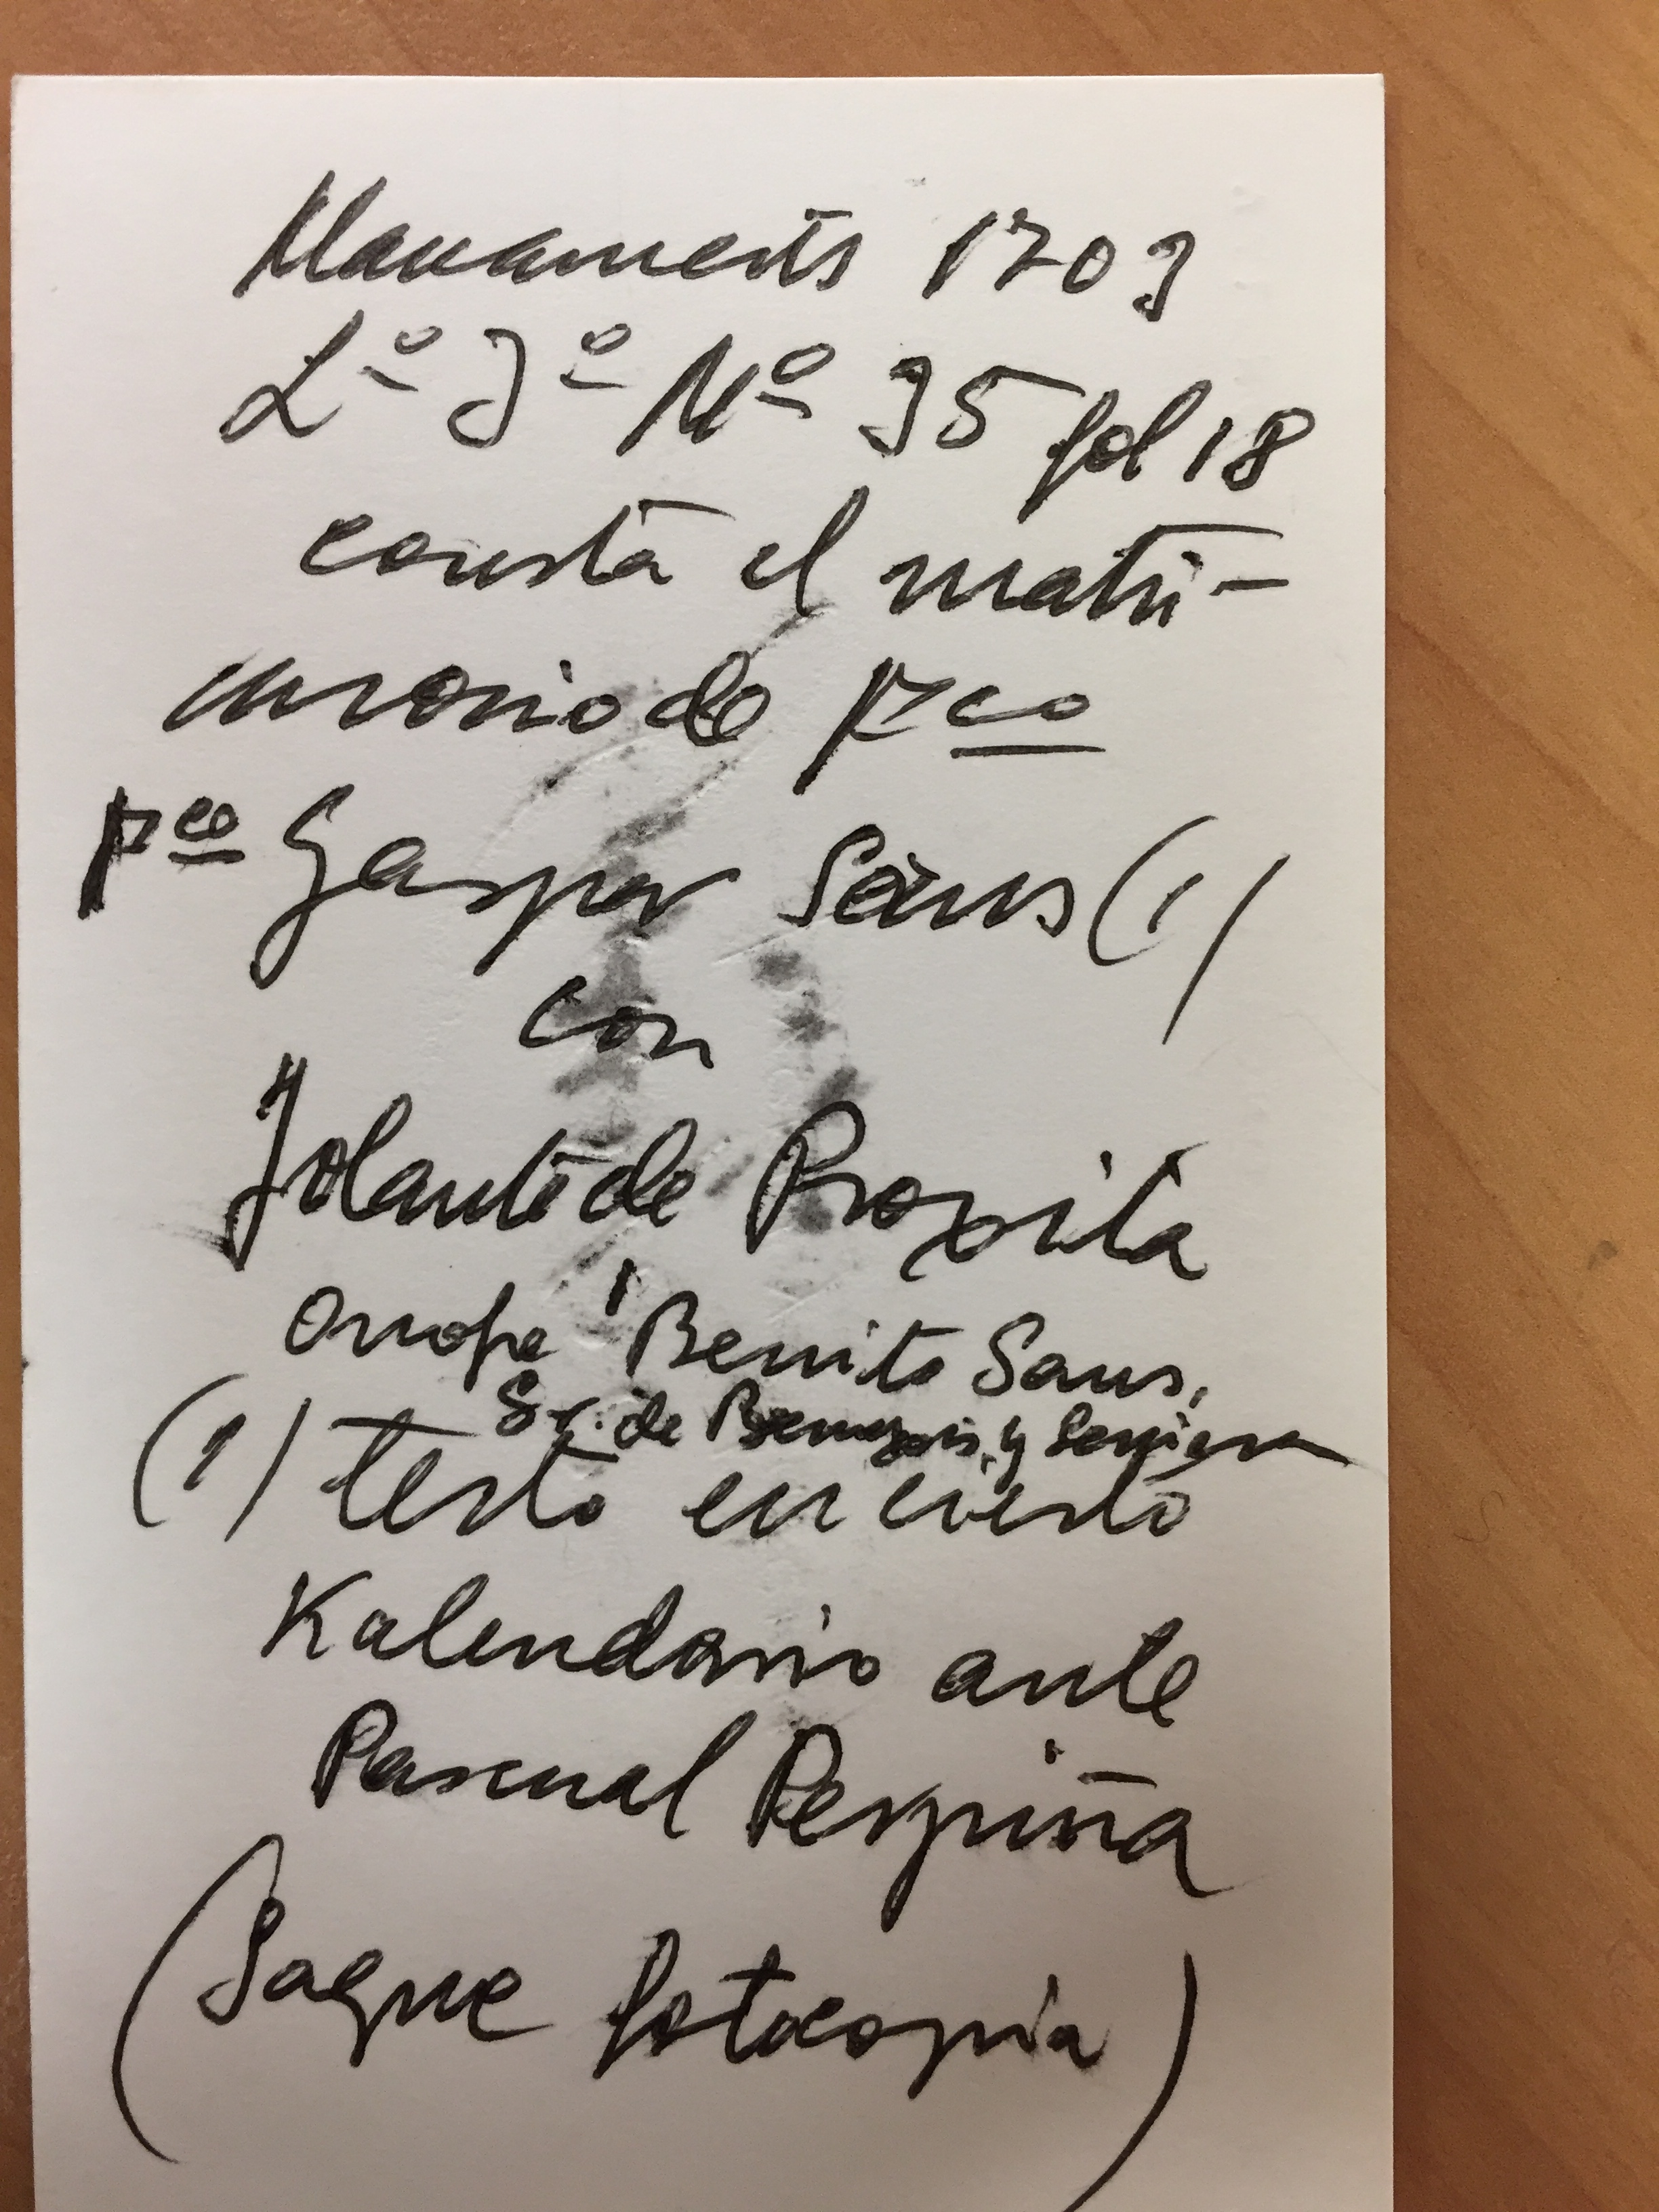 Manaments 1703
Lº 3º Nº 35 fol 18
consta el matri-
monio de Fco
Fco Gaspar Sans (1)
con
Yolante de Proxita
Onofre Benito Sans,
Sr. de y
(1) testó en cierto
Kalendario ante
Pascual Perpiñá
(Saque fotocopia)